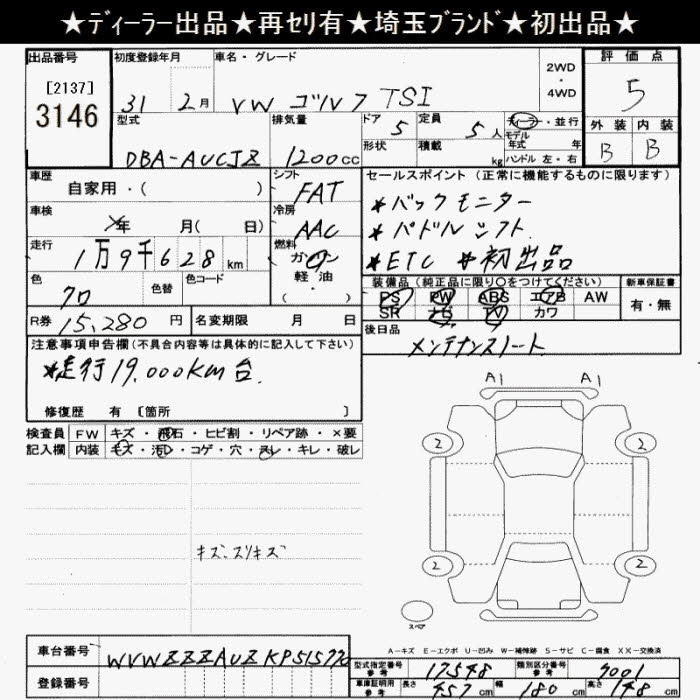 ★ディーラー出品★再セリ有★埼玉ブランド★初出品★
出品番号 初度登録年月 車名・グレード 2WD ・ 4WD 評価点
[2137]
3146 31 2月 VW ゴルフ TSI 5
型式 排気量 ドア 5 定員 5人 ディーラー・並行 外装 内装
モデル年式 年
DBA-AUCJZ 1200cc 形状 積載 kg ハンドル 左・右 B B
車歴 シフト セールスポイント (正常に機能するものに限ります)
自家用・( ) FAT
車検 年 月( 日) 冷房 AAC
*バックモニター
*パドルシフト
*ETC *初出品
走行 1万9千628km 燃料 ガソリン
軽・油
・( )
色 クロ 色替 色コード
装備品 (純正品に限り○をつけてください) 新車保証書
PS PW ABS エアB AW 有・無
SR ナビ TV カワ
R券 15,280円 名変期限 月 日 後日品
メンテナンスノート
注意事項申告欄(不具合内容等は具体的に記入して下さい)
*走行19,000km台.
修復歴 有 〔箇所 〕
A1 A1
検査員 FW キズ・飛石・ヒビ割・リペア跡・×要
記入欄 内装 キズ・汚れ・コゲ・穴・スレ・キレ・破レ
2 2
キズ、スリキズ
2 2
スペア
A-キズ E-エクボ U-凹み W-補修跡 S-サビ C-腐食 XX-交換済
車台番号 WVWZZZAUZKP515770
型式指定番号 参考 17548 類別区分番号 参考 9001
登録番号 車庫証明用 参考 長さ 457cm 幅 180cm 高さ 148cm